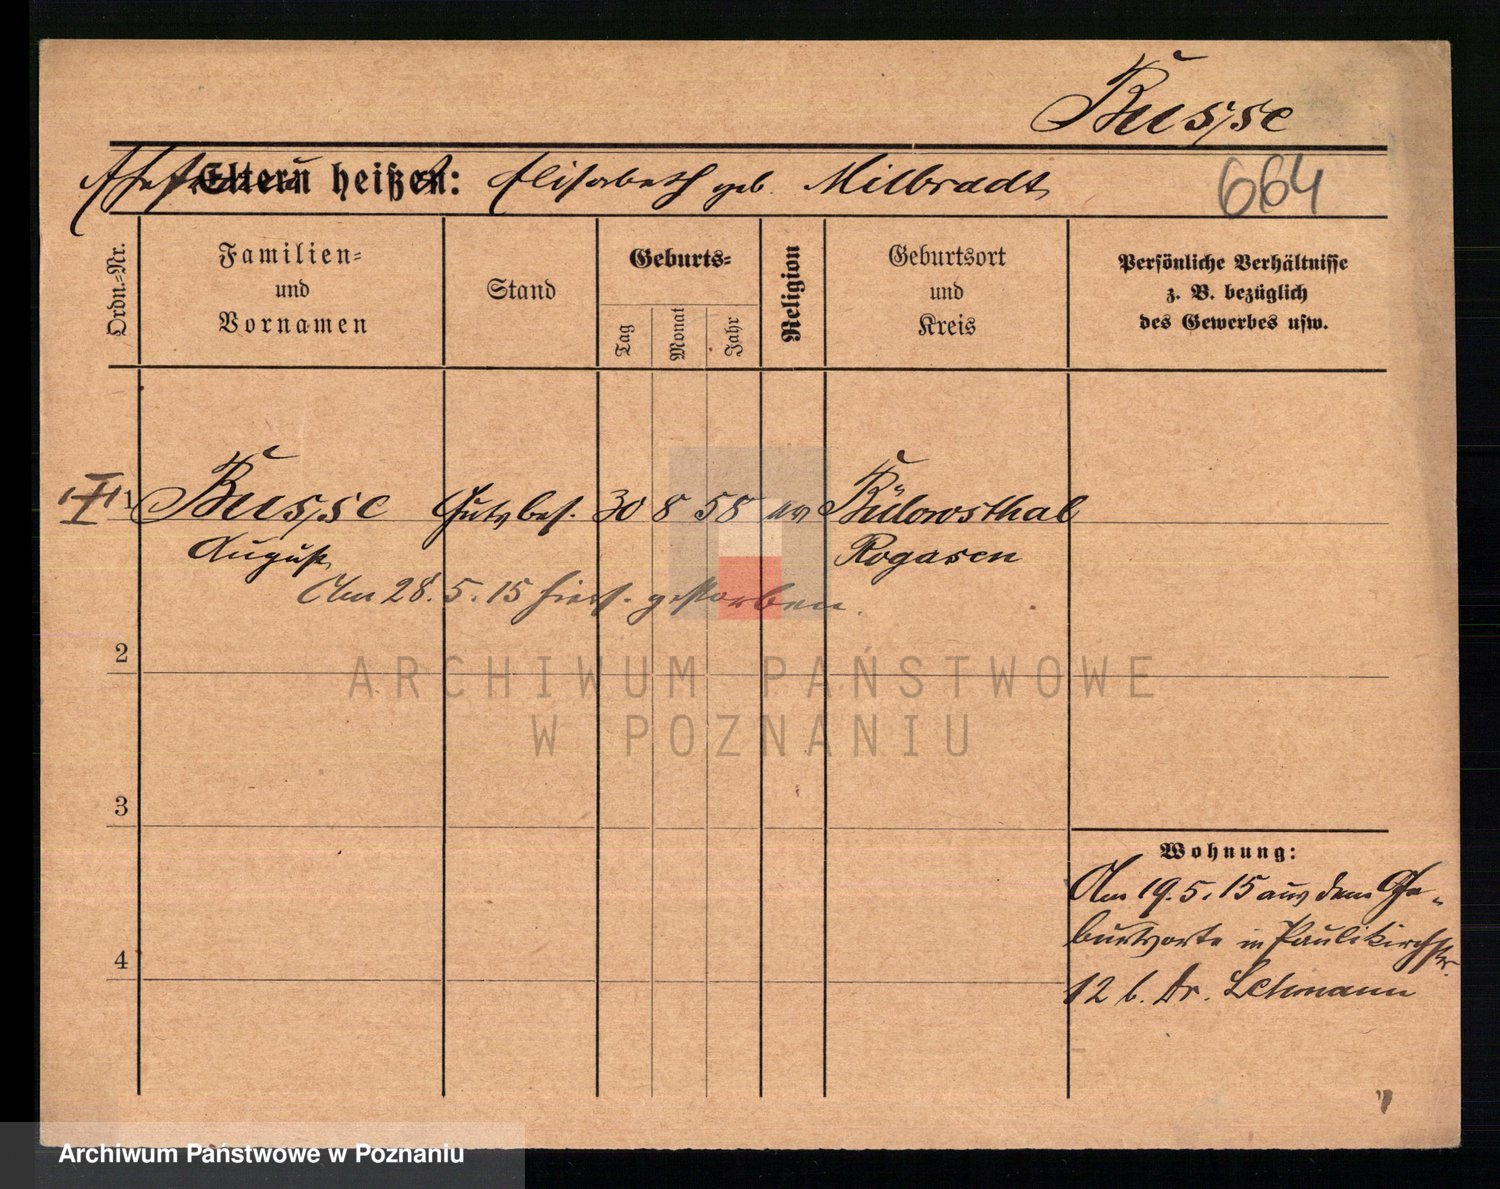 Busse
Ehefrau heißt: Elisabeth geb. Milbradt
664
Ordn.-Nr.
Familien-
und
Vornamen
Stand
Geburts-
Tag
Monat
Jahr
Religion
Geburtsort
und
Kreis
Persönliche Verhältnisse
z. B. bezüglich
des Gewerbes usw.
I 1 Busse Gutsbes. 30 8 58 ev Bülowsthal
August Rogasen
Am 28.5.15 hier gestorben.
2
ARCHIWUM PAŃSTWOWE
W POZNANIU
3
Wohnung:
Am 19.5.15 aus dem Ge-
burtsorte in Paulikirchstr.
4
12 b. Dr. Lehmann
Archiwum Państwowe w Poznaniu